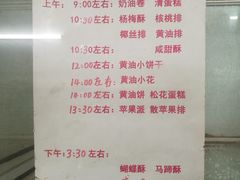 上午：9:00左右：奶油卷 清蛋糕
10:30左右：杨梅酥 核桃排
椰丝排 黄油排
10:30左右： 咸甜酥
12:00左右：黄油小饼干
14:00左右：黄油小花
14:00左右：黄油饼 松花蛋糕
13:30左右：苹果派 散苹果排
下午：3:30左右：
蝴蝶酥 马蹄酥